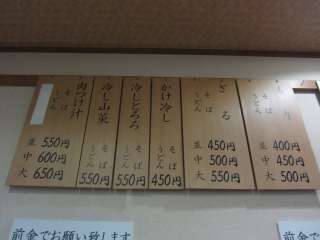 そば
うどん
並 400円
中 450円
大 500円
ざる
そば
うどん
並 450円
中 500円
大 550円
かけ冷し
そば
うどん
450円
冷しとろろ
そば
うどん
550円
冷し山菜
そば
うどん
550円
肉つけ汁
そば
うどん
並 550円
中 600円
大 650円
前金でお願い致します
前金で